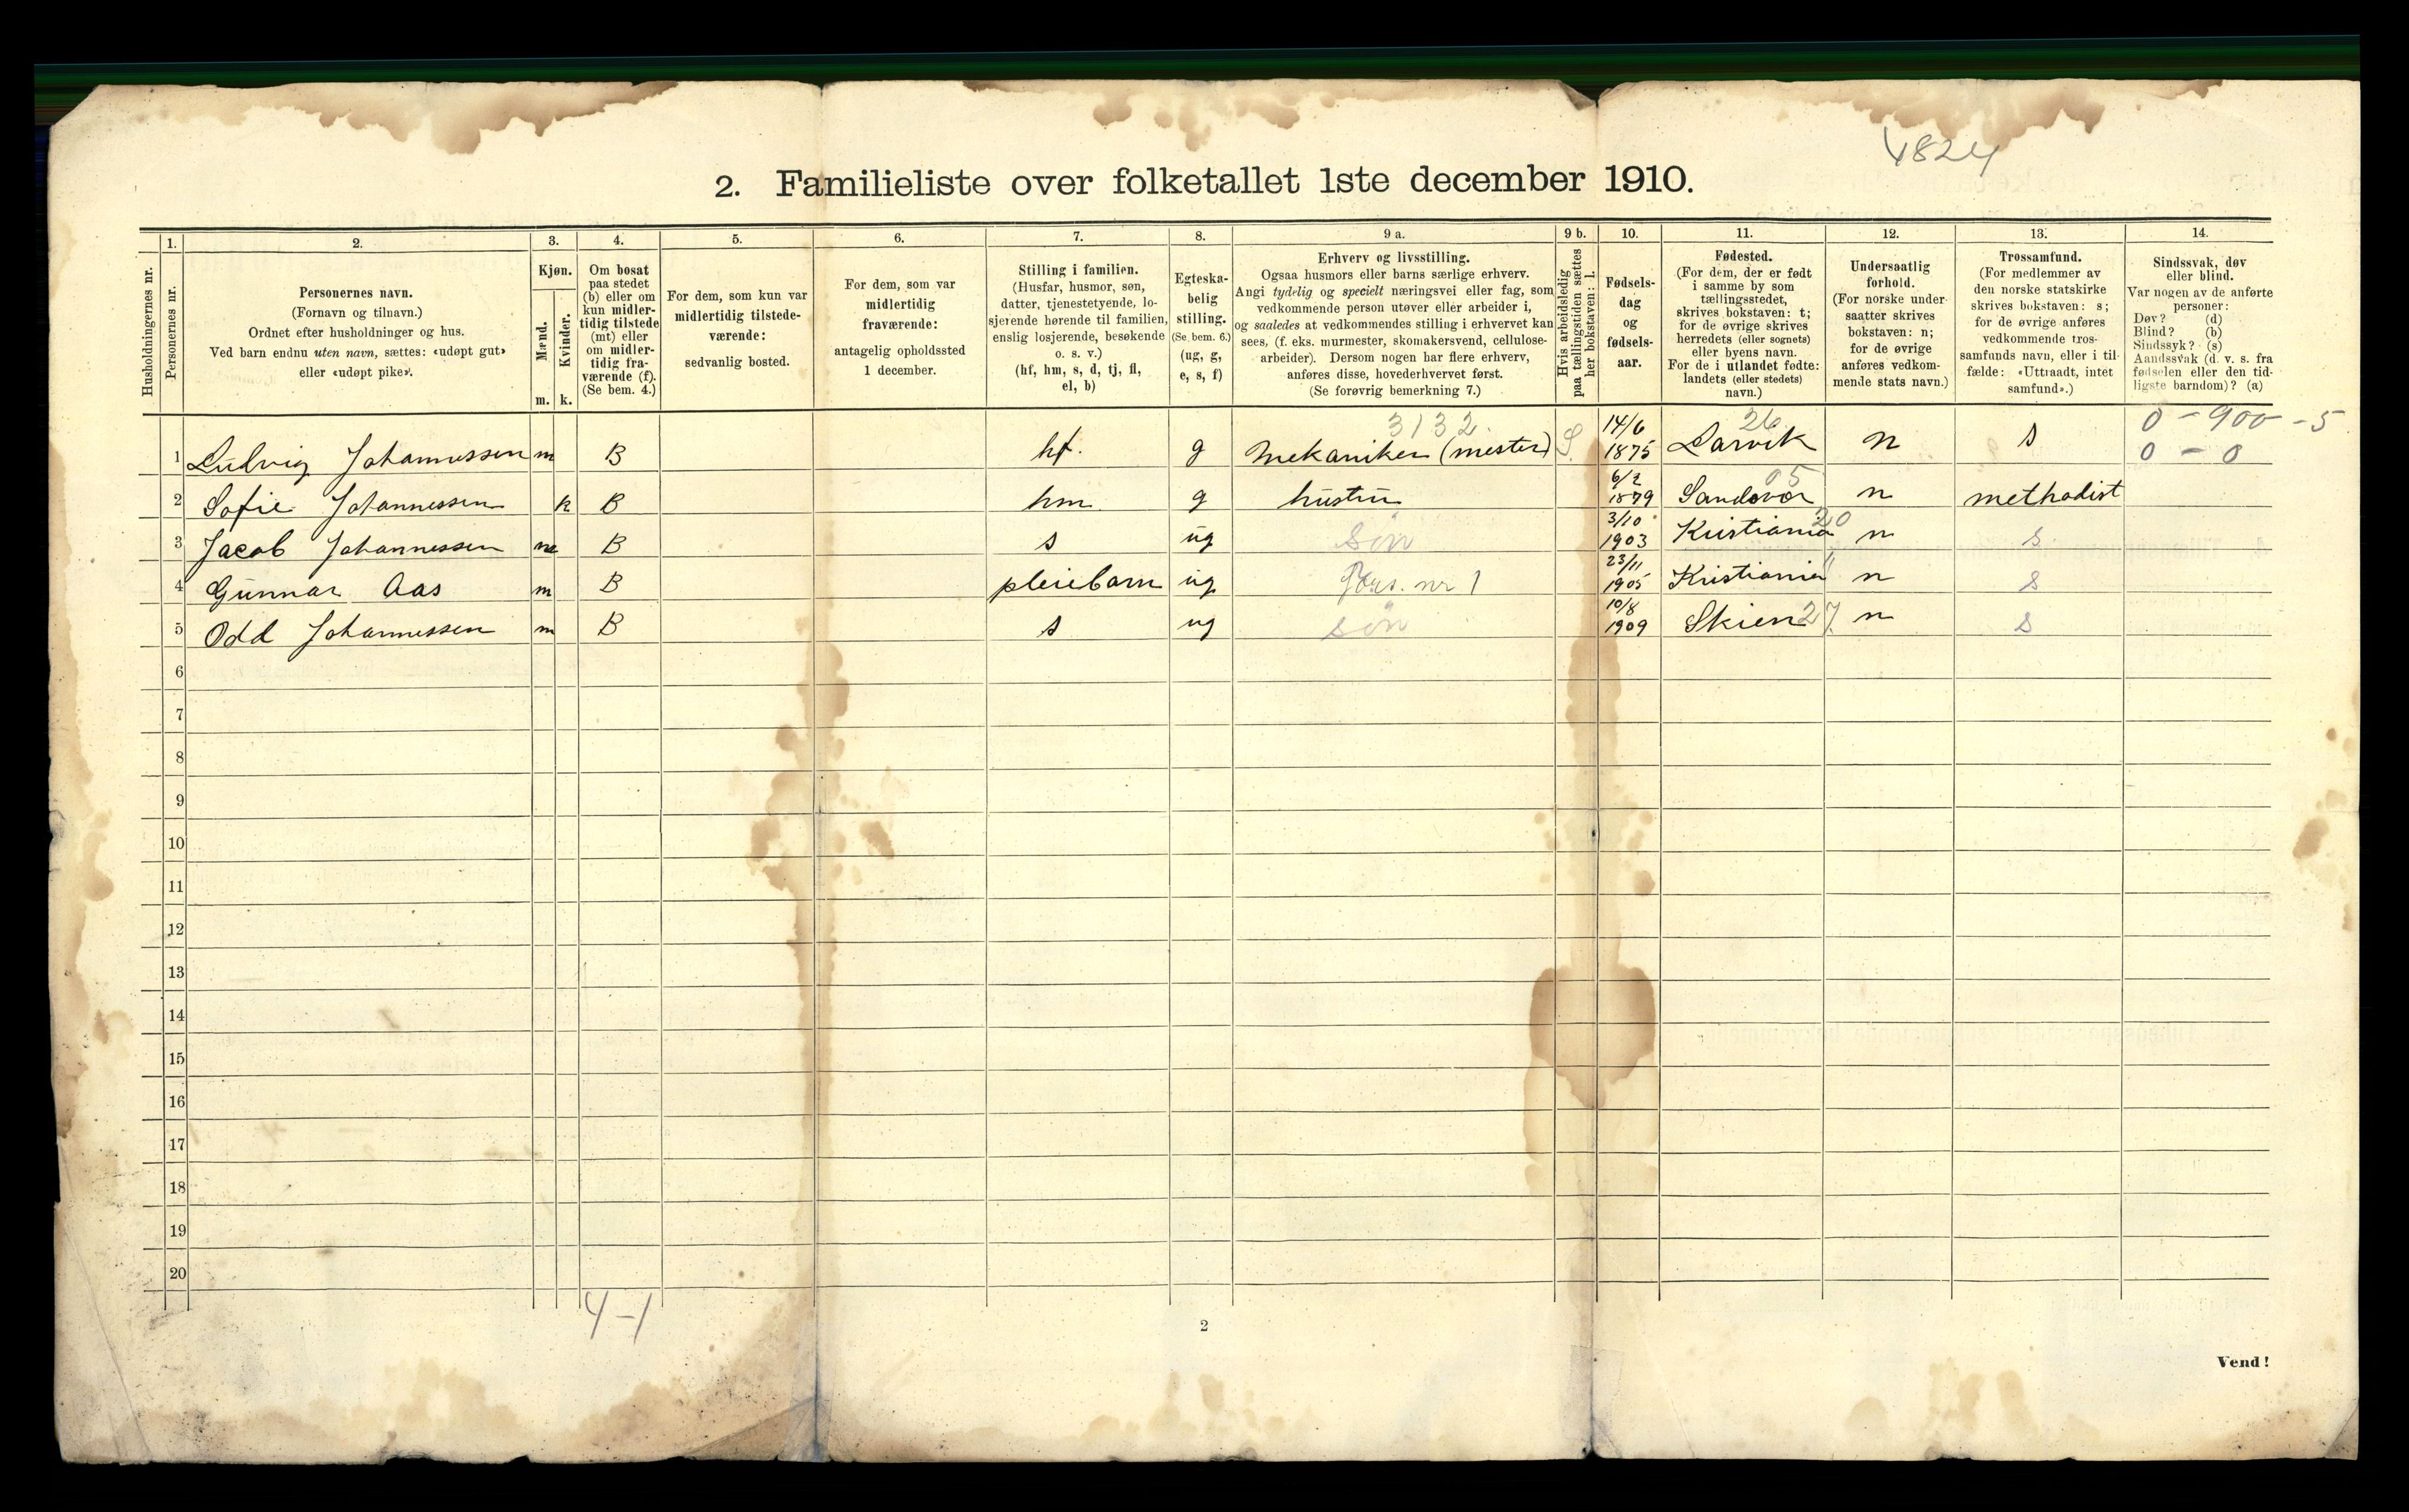 4824
2. Familieliste over folketallet 1ste december 1910.
Husholdningernes nr.
1.
Personernes nr.
2.
Personernes navn.
(Fornavn og tilnavn.)
Ordnet efter husholdninger og hus.
Ved barn endnu uten navn, sættes: «udøpt gut»
eller «udøpt pike».
3.
Kjøn.
Mænd.
Kvinder.
m. k.
4.
Om bosat
paa stedet
(b) eller om
kun midler-
tidig tilstede
(mt) eller
om midler-
tidig fra-
værende (f).
(Se bem. 4.)
5.
For dem, som kun var
midlertidig tilstede-
værende:
sedvanlig bosted.
6.
For dem, som var
midlertidig
fraværende:
antagelig opholdssted
1 december.
7.
Stilling i familien.
(Husfar, husmor, søn,
datter, tjenestetyende, lo-
sjerende hørende til familien,
enslig losjerende, besøkende
o. s. v.)
(hf, hm, s, d, tj, fl,
el, b)
8.
Egteska-
belig
stilling.
(Se bem. 6.)
(ug, g,
e, s, f)
9 a.
Erhverv og livsstilling.
Ogsaa husmors eller barns særlige erhverv.
Angi tydelig og specielt næringsvei eller fag, som
vedkommende person utøver eller arbeider i,
og saaledes at vedkommendes stilling i erhvervet kan
sees, (f. eks. murmester, skomakersvend, cellulose-
arbeider). Dersom nogen har flere erhverv,
anføres disse, hovederhvervet først.
(Se forøvrig bemerkning 7.)
9 b.
Hvis arbeidsledig
paa tællingstiden sættes
her bokstaven: l.
10.
Fødsels-
dag
og
fødsels-
aar.
11.
Fødested.
(For dem, der er født
i samme by som
tællingsstedet,
skrives bokstaven: t;
for de øvrige skrives
herredets (eller sognets)
eller byens navn.
For de i utlandet fødte:
landets (eller stedets)
navn.)
12.
Undersaatlig
forhold.
(For norske under-
saatter skrives
bokstaven: n;
for de øvrige
anføres vedkom-
mende stats navn.)
13.
Trossamfund.
(For medlemmer av
den norske statskirke
skrives bokstaven: s;
for de øvrige anføres
vedkommende tros-
samfunds navn, eller i til-
fælde: «Uttraadt, intet
samfund».)
14.
Sindssvak, døv
eller blind.
Var nogen av de anførte
personer:
Døv? (d)
Blind? (b)
Sindssyk? (s)
Aandssvak (d. v. s. fra
fødselen eller den tid-
ligste barndom)? (a)
3132. 26 0 - 900 - 5
1 Ludvig Johannessen m B hf. g Mekaniker (mester) S 14/6 1875 Larvik n s 0 - 0
05
2 Sofie Johannessen k B hm g hustru 6/2 1879 Sandsvær n methodist
20
3 Jacob Johannessen m B s ug søn 3/10 1903 Kristiania n s
4 Gunnar Aas m B pleiebarn ug Fors. nr 1 23/11 1905 Kristiania " n s
5 Odd Johannessen m B s ug søn 10/8 1909 Skien 27 n s
6
7
8
9
10
11
12
13
14
15
16
17
18
19
20
4-1
2
Vend!